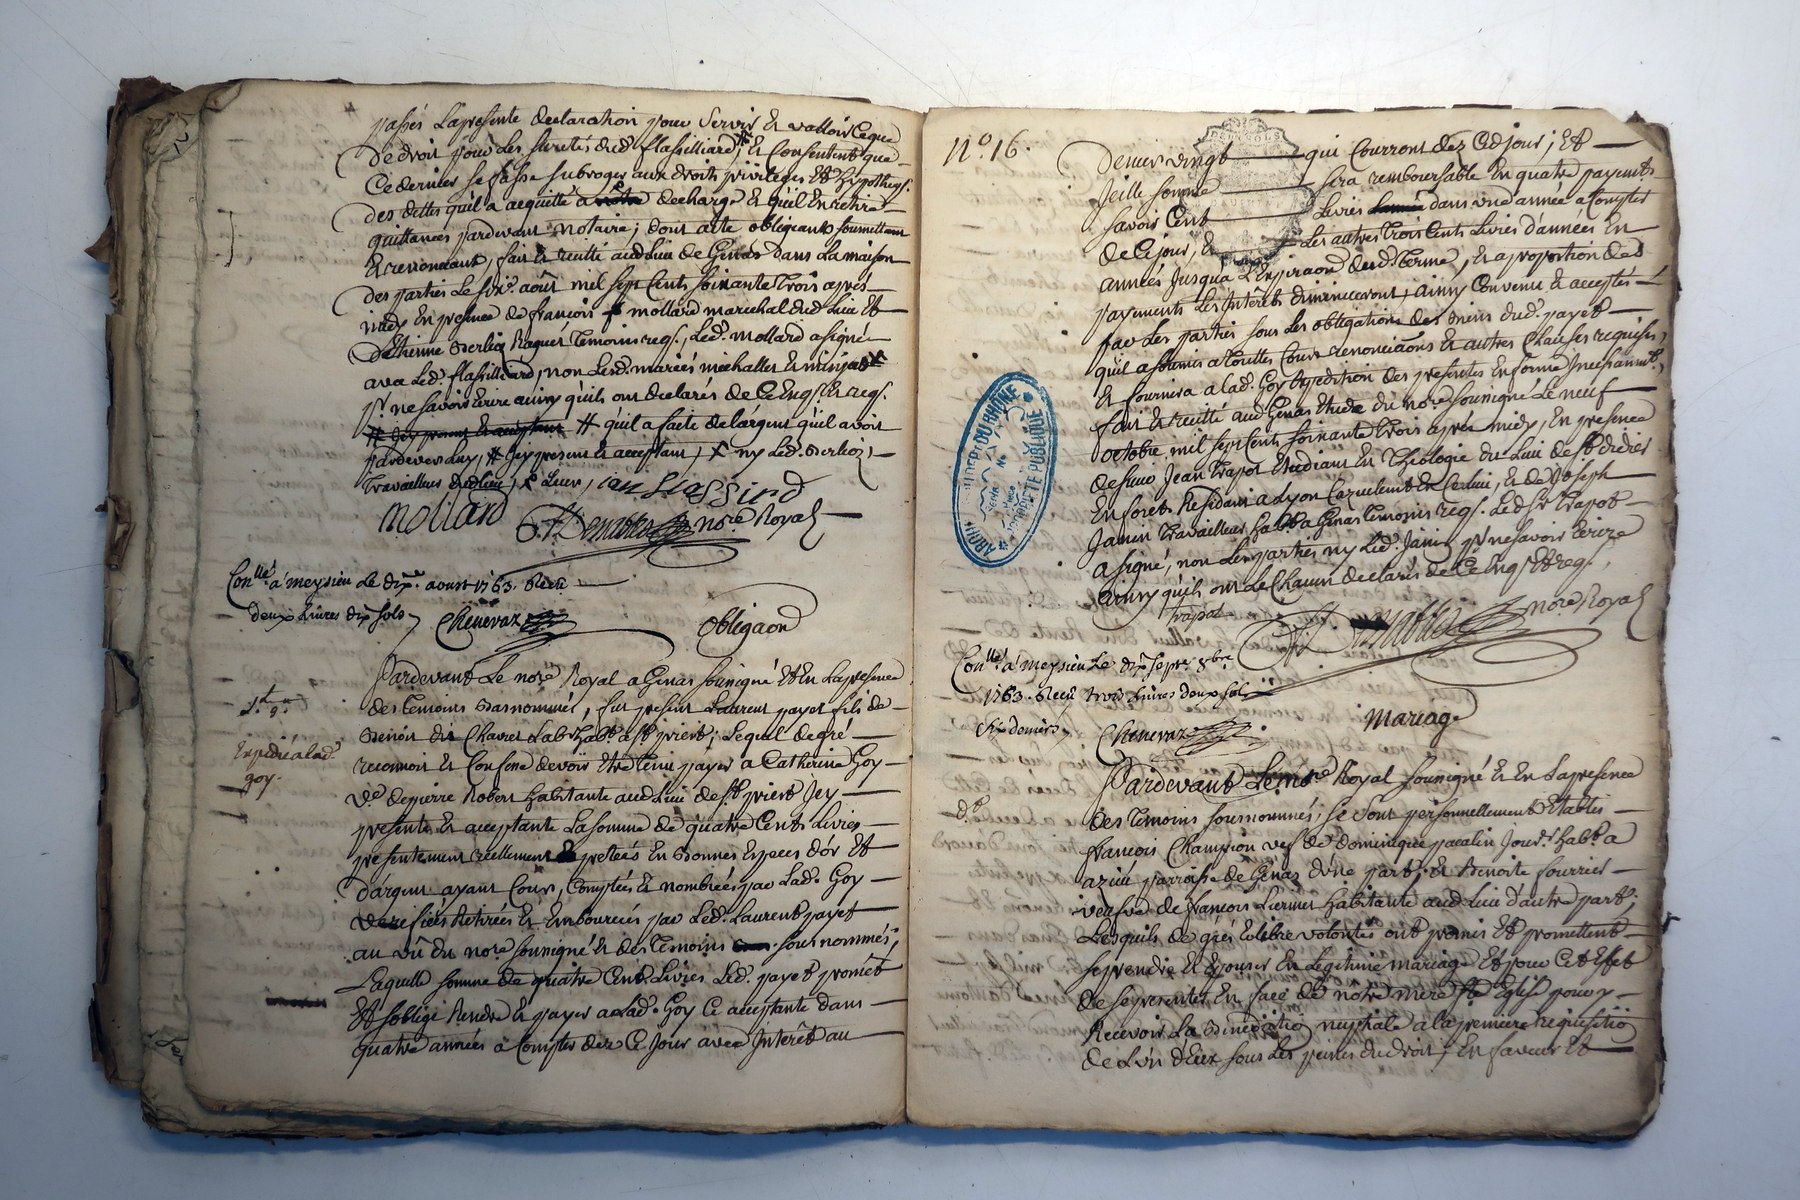 passés La presente declaration pour Servir Et valloir Ceque
De droit pour Les suretés dud. flassilliard, Et Consentent que
Ce dernier se fasse subroger aux droits privileges Et hypotheqs.
des dettes qu'il a acquitté a decharge Et qu'il En retire
quittances pardevant Notaire; dont acte obligeants soumettant
Et renonceant, fait Et recitté aud Lieu de Genas dans La maison
des parties Le août mil sept Cents soixante Trois après
midy En presence de françois mollard marechal dud. Lieu Et
D'Ethienne Berlioz Temoins reqs. Led. mollard a signé
avec Led. non Lesd. mariés
pr. ne savoir Ecrire ainsy qu'ils ont declarés de Ce Enqs. Et reqs.
# qu'il a faite de L'argent qu'il avoit
pardevers luy, # Icy present Et acceptant, ny Led. Berlioz,
Travailleur dud lieu,
Mollard nore Royal
Conllé a meysieu Le dixe aoust 1763. Recu
deux Livres dix sols Chenevaz
Obligaon
Pardevant Le nore Royal a Genas soussigné Et En La presence
des Temoins Basnommés, fut present Laurent payet fils de
Benoit dit Chavret Labr habt. a st. priest; Lequel de gré
Expedié a lad.
reconnoit Et Confesse devoir Etre Tenu payer a Catherine Goy
goy.
ve de pierre Robert habitante aud Lieu de st. priest Icy
presente Et acceptante La somme de quatre Cents Livres
presentement reellement pretées En Bonnes Especes d'or Et
d'argent ayant Cours, Comptées Et nombrées par Lad. Goy
verefiées Retirées Et Emboursées par Led. Laurent payet
au vû du nore soussigné Et des Temoins sous nommés,
Laquelle somme de quatre Cents Livres Led. payet promét
Et s'oblige Rendre Et payer a Lad. Goy Ce acceptante dans
quatre années a Compter dez Ce Jour avec Intérêt au
No. 16.
Denier vingt qui Courront dez Ced jour; Et
Jcille somme sera remboursable En quatre payements
savoir Cent Livres dans une année a Compter
de Ce jour, Et Les autres Trois Cents Livres d'années En
années Jusqu'a L'Expiraon dud. Terme, Et a proportion des
payements Les Intérêts diminueront, ainsy Convenu Et acceptés
par Les parties sous Les obligations des Biens dud. payet
qu'il a soumis a Touttes Cours renonciaons Et autres Clauses requises,
Et fournira a lad. Goy Expedition des presentes En forme Incessammt.,
fait Et recitté aud Genas Etude du nore soussigné Le neuf
octobre mil sept Cents soixante Trois après midy, En presence
de sieur Jean Trapot Etudiant En Theologie du Lieu de st Didier
En forets Residant a Lyon Et de Joseph
Janin Travailleur habt. a Genas Temoins reqs. Led sr Trapot
a signé, non Les parties ny Led. Janin pr ne savoir Ecrire
ainsy qu'ils ont Le Chacun declarés de Ce Enqs Et reqs.
Trapot nore Royal
Conllé a meysieu Le dix sepre 8bre
1763. Recu trois Livres deux sols
six deniers Chenevaz
Mariage
Pardevant Le nore Royal soussigné Et En La presence
des Temoins sousnommés, se sont personnellement Etablis
françois Champion vef de dominique pacalin Jourr. habt. a
azieu parroisse de Genas d'une part; Et Benoite fourrier
veufve de françois Larmier habitante aud Lieu d'autre part;
Lesquels de grés Et libre volonté ont promis Et promettent
se prendre Et Epouser En Legitime mariage Et pour Cet Effet
de se presenter En face de notre mere ste Eglise pour y
Recevoir La Benediction nuptiale a la premiere requisition
de L'un d'Eux sous Les peines du droit, En faveur Et
ARCHIVES DEP. DU RHONE